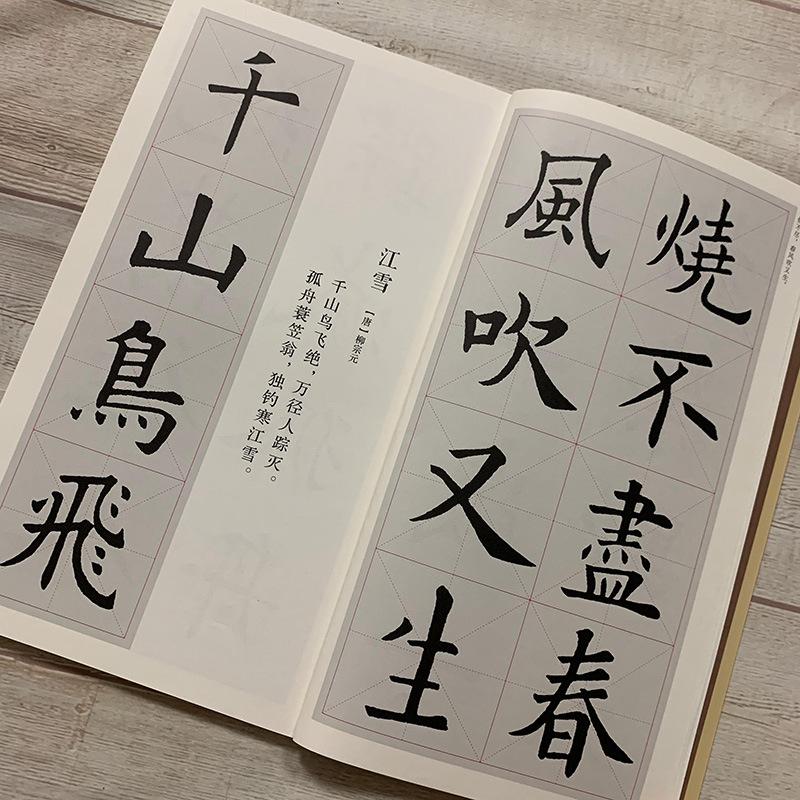 春风吹又生。
燒不盡春
風吹又生
江雪
【唐】柳宗元
千山鸟飞绝，万径人踪灭。
孤舟蓑笠翁，独钓寒江雪。
千山鳥飛